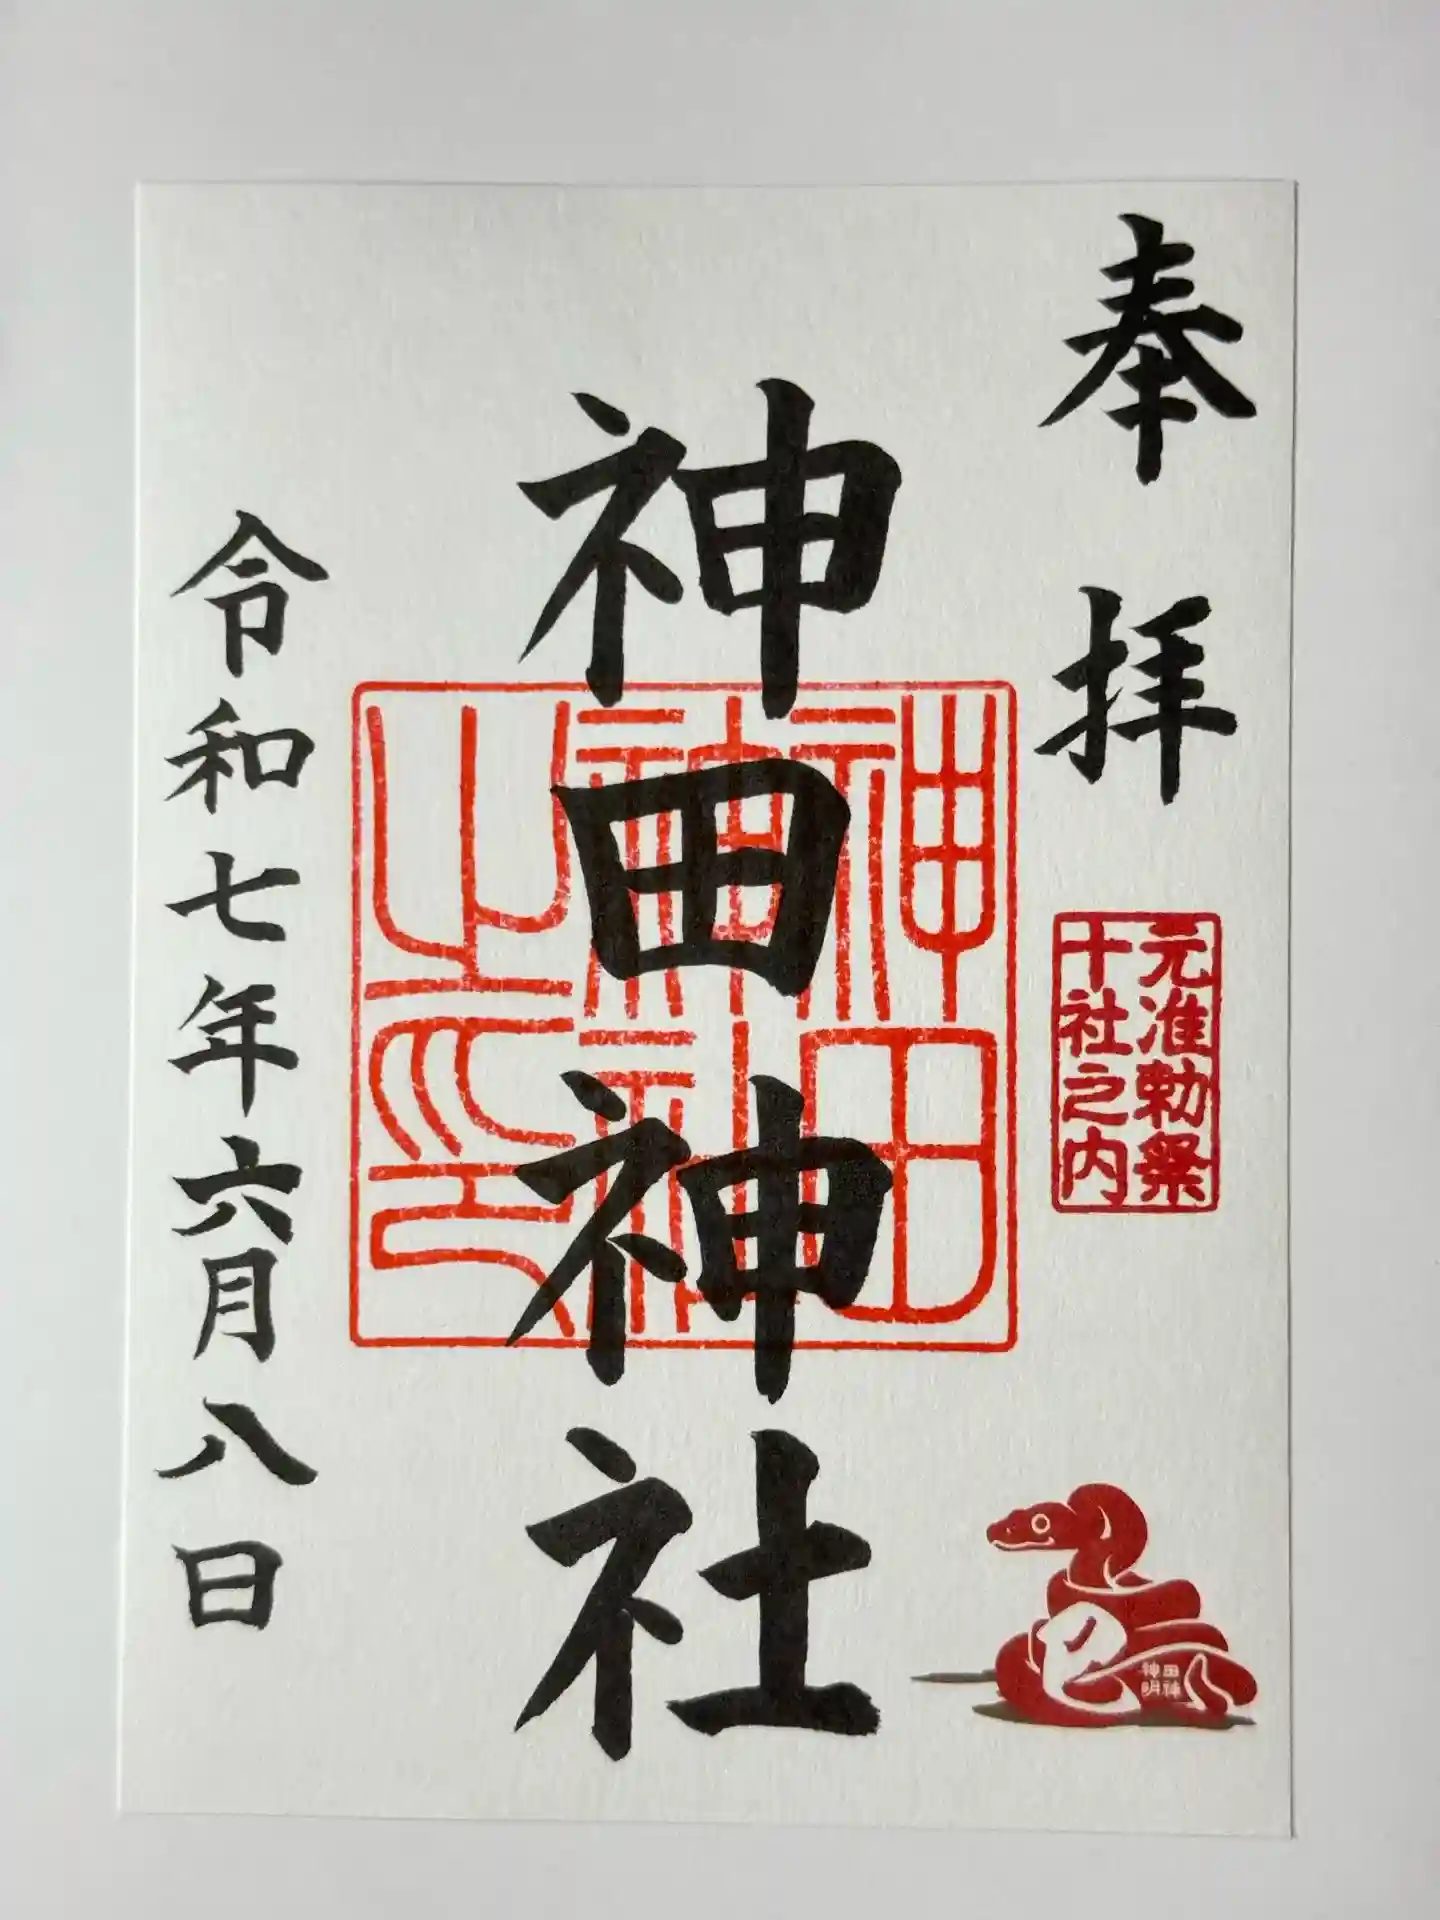 奉拝
元准勅祭
十社之内
神田神社
神田
神社
之印
令和七年六月八日
巳
田神
神明